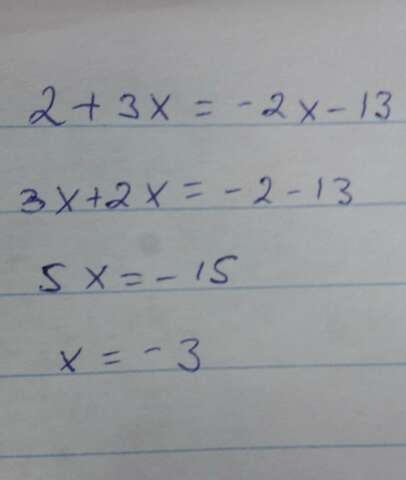 2 + 3x = -2x - 13
3x + 2x = -2 - 13
5x = -15
x = -3